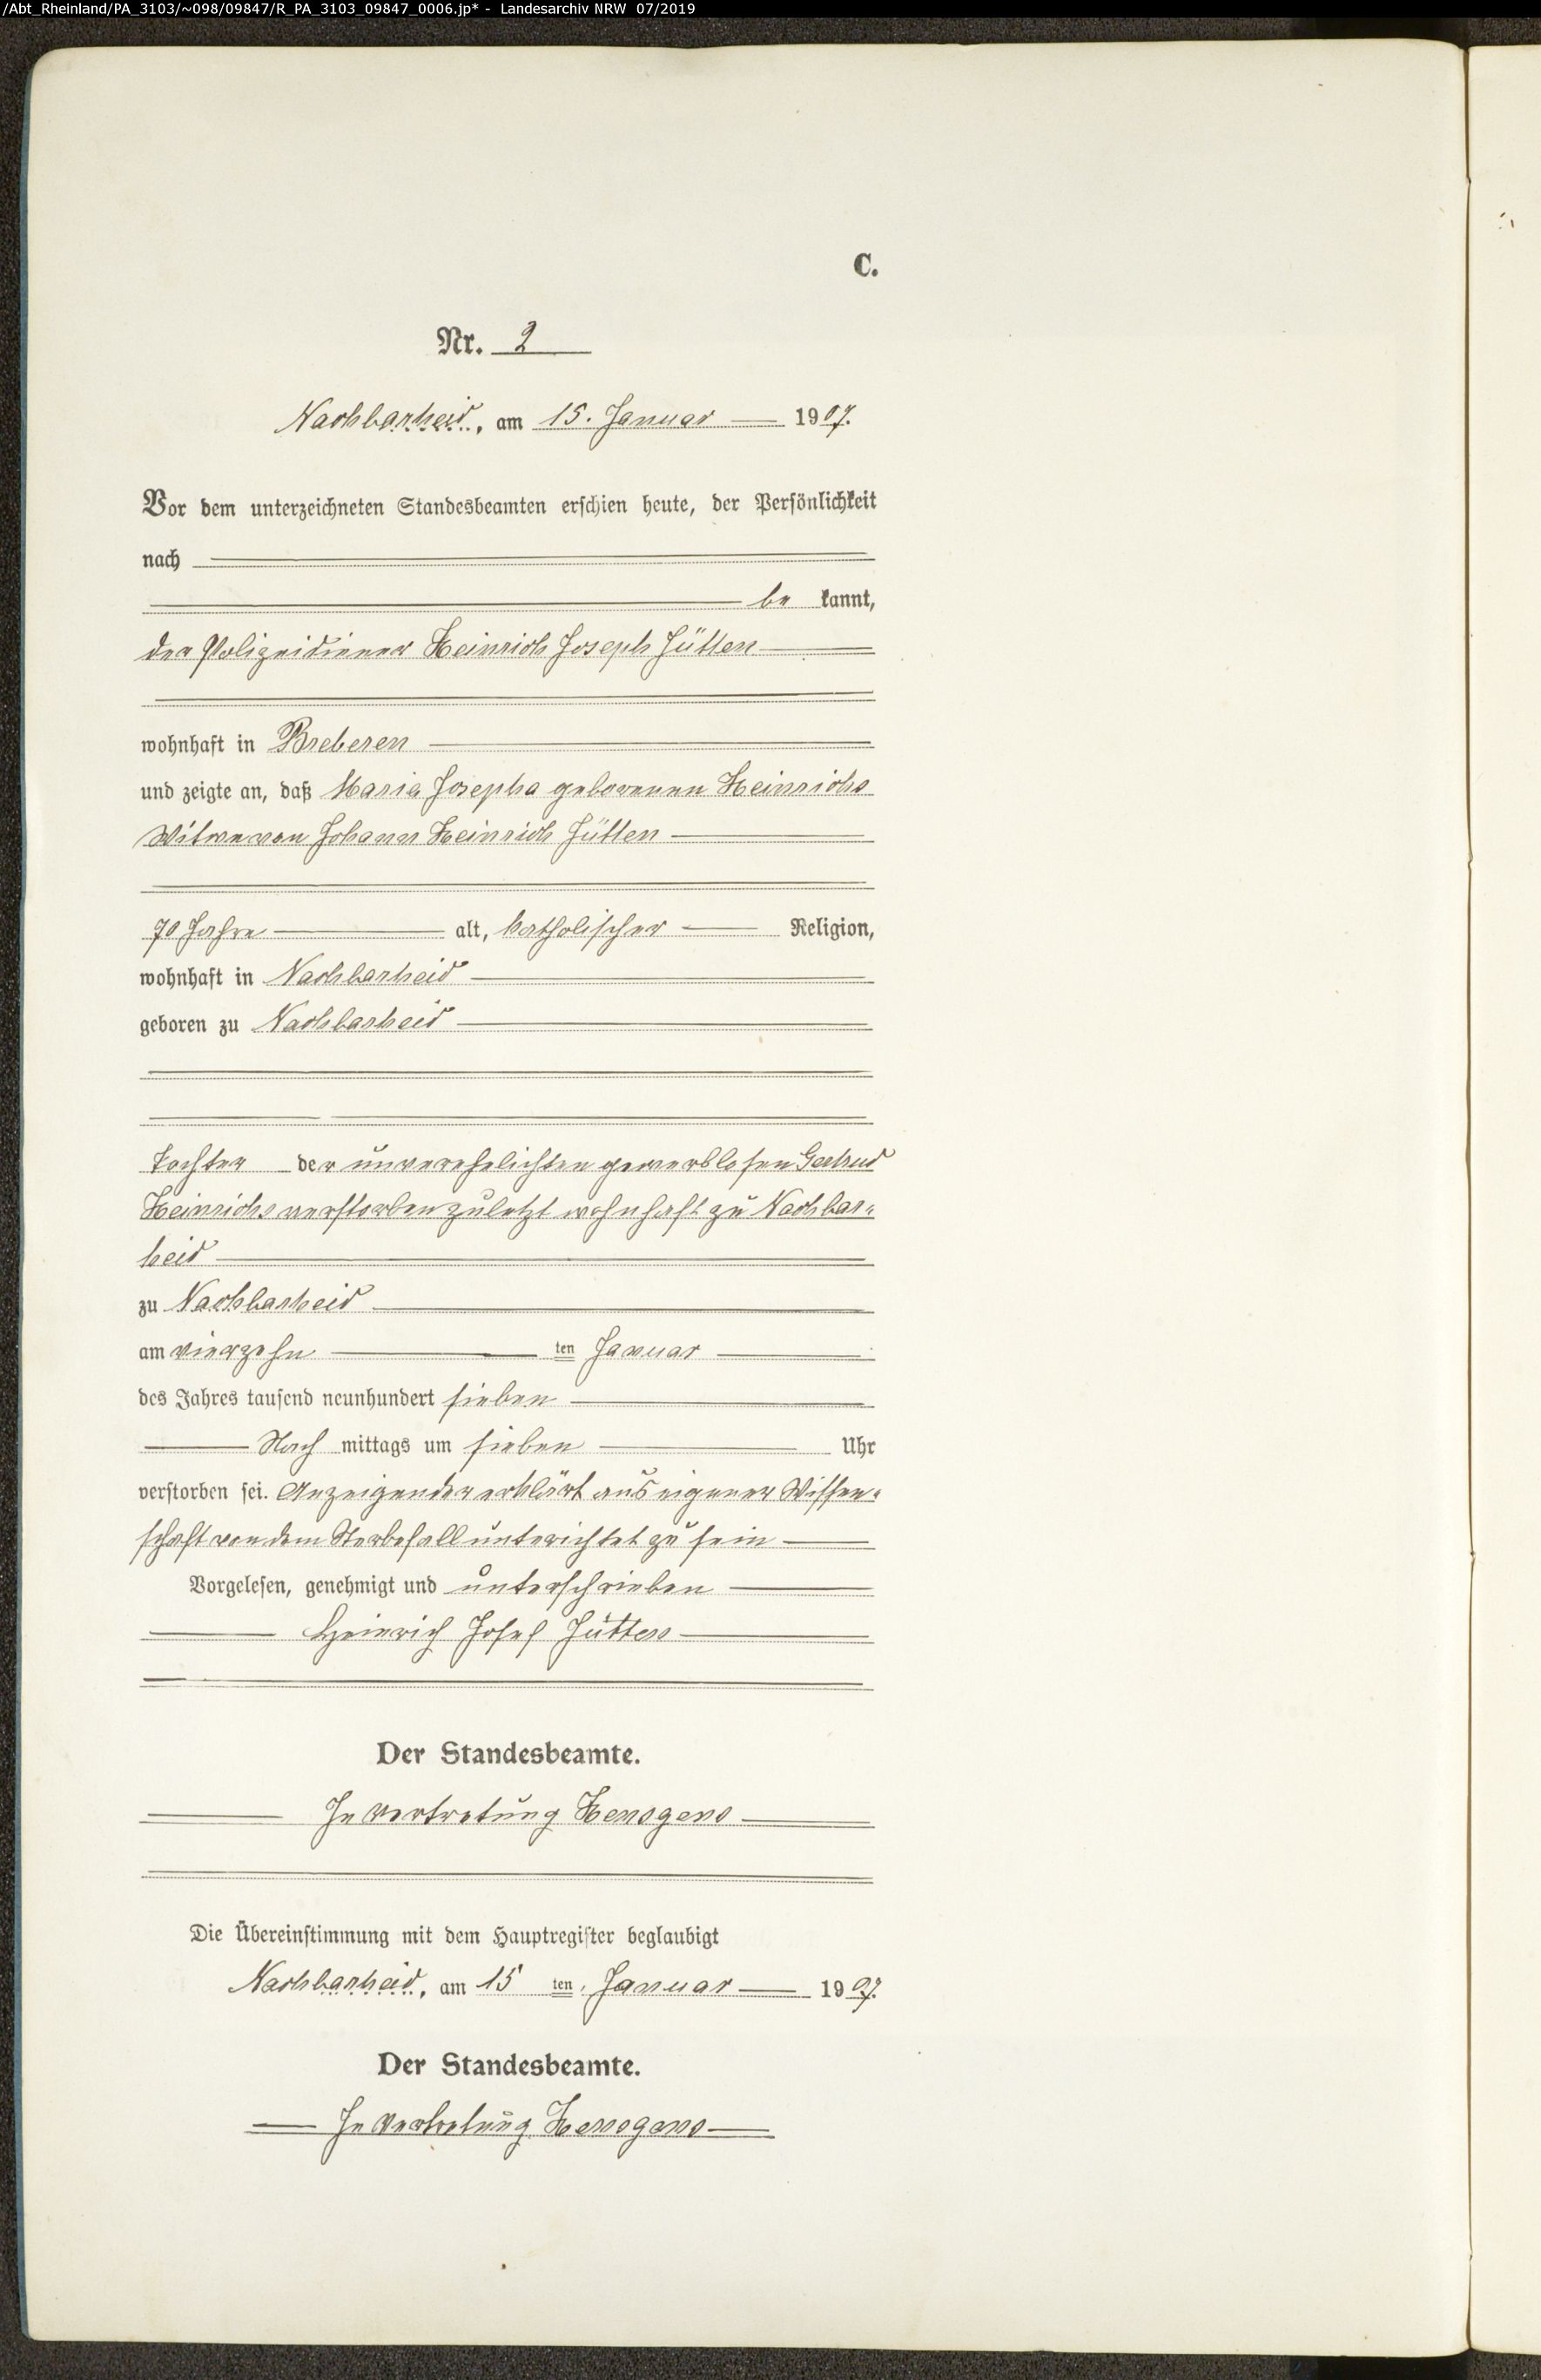 /Abt_Rheinland/PA_3103/~098/09847/R_PA_3103_09847_0006.jp* - Landesarchiv NRW 07/2019
C.
Nr. 2
Nachbarheid, am 15. Januar 1907.
Vor dem unterzeichneten Standesbeamten erschien heute, der Persönlichkeit
nach
be kannt,
der Polizeidiener Heinrich Joseph Jütten
wohnhaft in Breberen
und zeigte an, daß Maria Josepha geborenen Heinrichs
Witwe von Johann Heinrich Jütten
70 Jahre alt, katholischer Religion,
wohnhaft in Nachbarheid
geboren zu Nachbarheid
Tochter der unverehelichten gewerblosen Gertrud
Heinrichs verstorben zuletzt wohnhaft zu Nachbar=
heid
zu Nachbarheid
am vierzehn ten Januar
des Jahres tausend neunhundert sieben
Nach mittags um sieben Uhr
verstorben sei. Anzeigender erklärt aus eigener Wissen=
schaft von dem Sterbefall unterichtet zu sein
Vorgelesen, genehmigt und unterschrieben
Heinrich Josef Jütten
Der Standesbeamte.
In Vertretung Hensgens
Die Übereinstimmung mit dem Hauptregister beglaubigt
Nachbarheid, am 15 ten Januar 1907.
Der Standesbeamte.
In Vertretung Hensgens